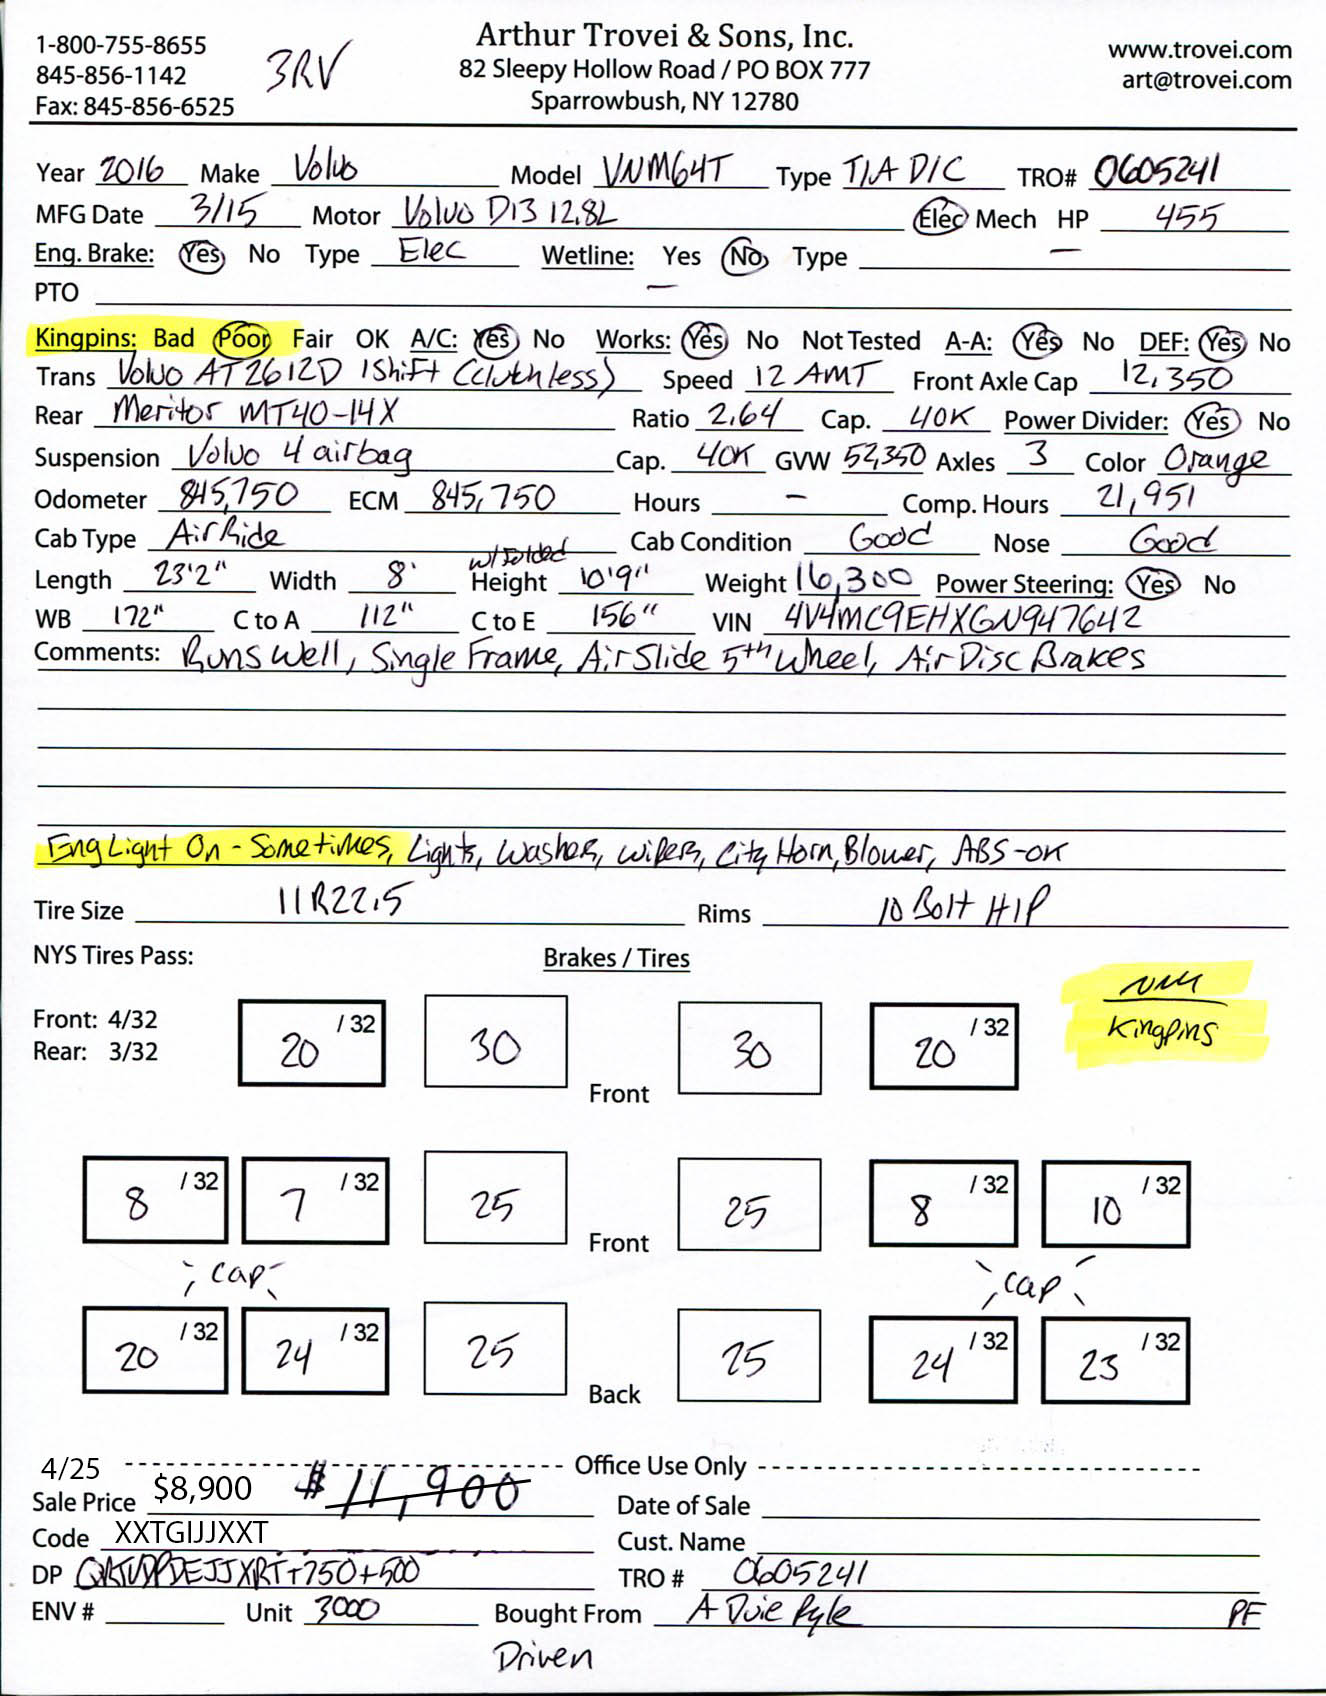 1-800-755-8655
845-856-1142
Fax: 845-856-6525
3RV
Arthur Trovei & Sons, Inc.
82 Sleepy Hollow Road / PO BOX 777
Sparrowbush, NY 12780
www.trovei.com
art@trovei.com
Year 2016 Make Volvo Model VNM64T Type T/A D/C TRO# 0605241
MFG Date 3/15 Motor Volvo D13 12.8L Elec Mech HP 455
Eng. Brake: Yes No Type Elec Wetline: Yes No Type —
PTO —
Kingpins: Bad Poor Fair OK A/C: Yes No Works: Yes No Not Tested A-A: Yes No DEF: Yes No
Trans Volvo AT2612D IShift (Clutchless) Speed 12 AMT Front Axle Cap 12,350
Rear Meritor MT40-14X Ratio 2.64 Cap. 40K Power Divider: Yes No
Suspension Volvo 4 airbag Cap. 40K GVW 52,350 Axles 3 Color Orange
Odometer 845,750 ECM 845,750 Hours - Comp. Hours 21,951
Cab Type Air Ride Cab Condition Good Nose Good
w/ Folded
Length 23'2" Width 8' Height 10'9" Weight 16,300 Power Steering: Yes No
WB 172" C to A 112" C to E 156" VIN 4V4MC9EHXGN947642
Comments: Runs Well, Single Frame, Air Slide 5th Wheel, Air Disc Brakes
Eng Light On - Sometimes, Lights, Washer, Wipers, City Horn, Blower, ABS-OK
Tire Size 11R22.5 Rims 10 Bolt H/P
NYS Tires Pass: Brakes / Tires
Front: 4/32
Rear: 3/32
Kingpins
20 /32 30 Front 30 20 /32
8 /32 7 /32 25 Front 25 8 /32 10 /32
cap cap
20 /32 24 /32 25 Back 25 24 /32 23 /32
4/25 Office Use Only
Sale Price $8,900 $11,900 Date of Sale
Code XXTGIJJXXT Cust. Name
DP +750+500 TRO # 0605241
ENV # Unit 3000 Bought From A Duie Pyle PF
Driven